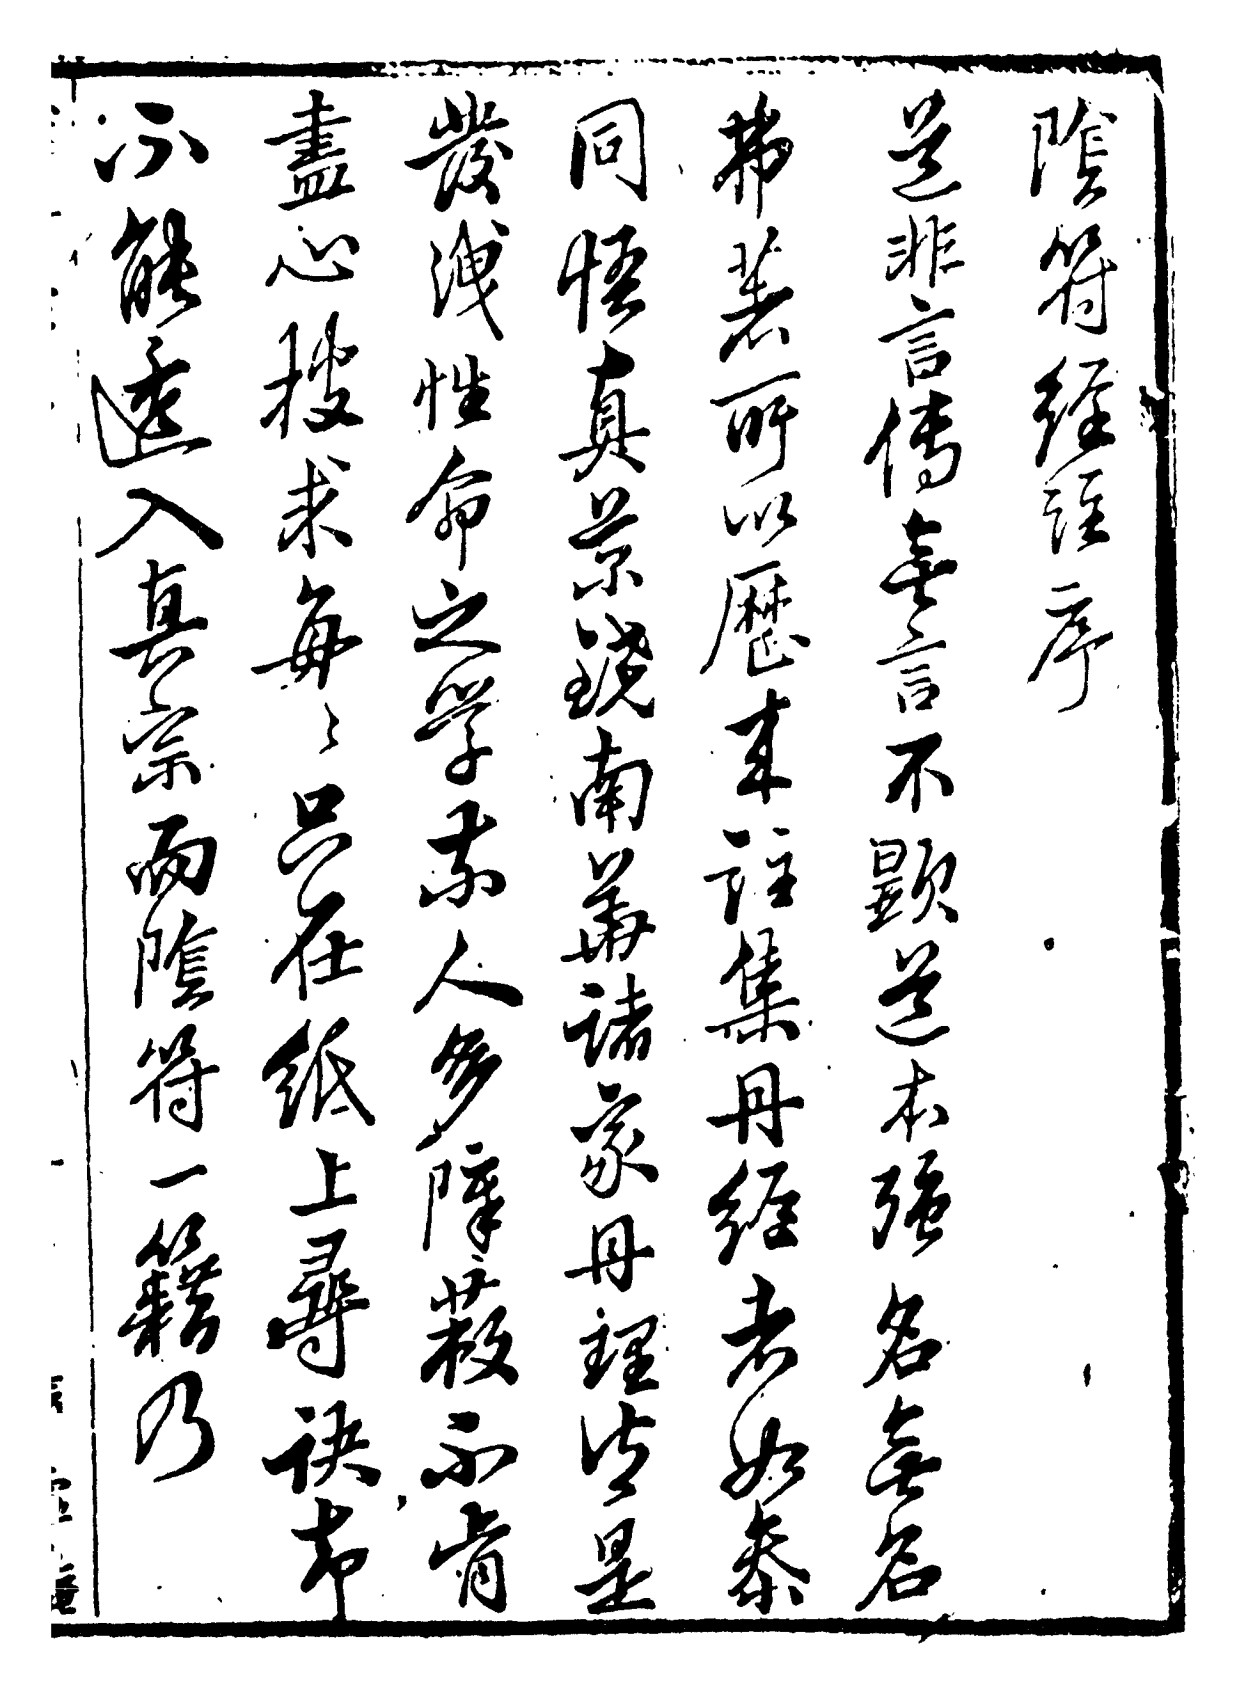 陰符經註序
道非言傳無言不顯道本强名無名
弗著所以歷來註集丹經者如叅
同悟真景鐃南華諸家丹理皆是
發洩性命之學柰人多障蔽不肯
盡心搜求每々只在紙上尋訣却
不能透入真宗而陰符一籍乃